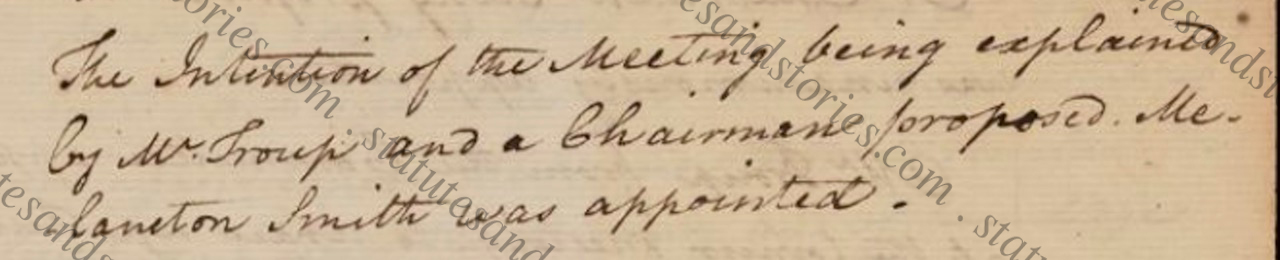 The Intention of the Meeting being explained
by Mr. Troup and a Chairman proposed. Me-
lancton Smith was appointed.
statutesandstories.com . statutesandstories.com . statutesandstories.com